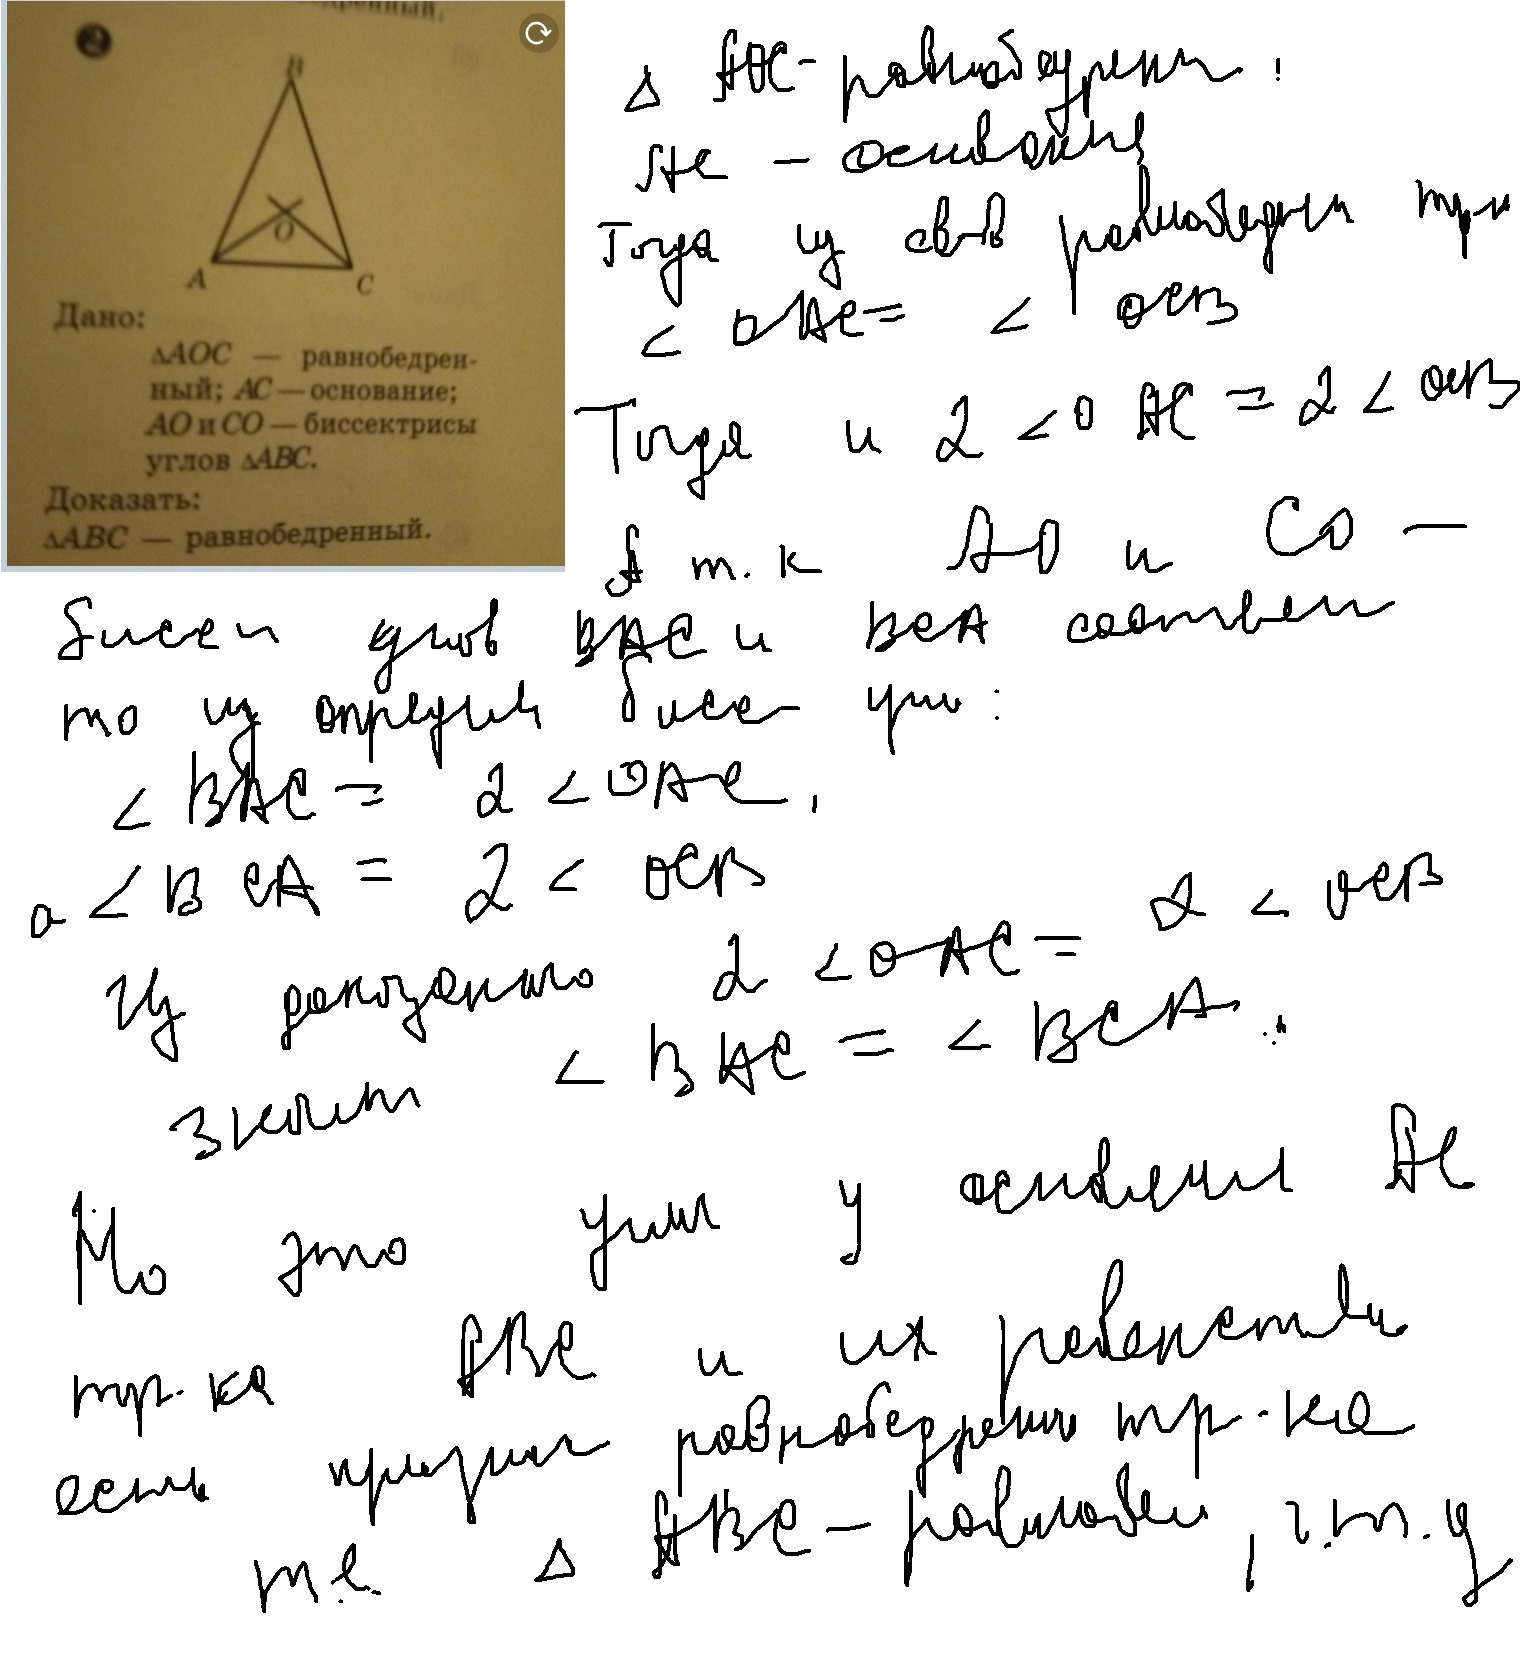 B
O
A
C
Дано:
△AOC — равнобедрен-
ный; AC — основание;
AO и CO — биссектрисы
углов △ABC.
Доказать:
△ABC — равнобедренный.
△ AOC - равнобедрен.
AC - основание
Тогда из св-в равнобедрен тр-к
< OAC = < OCB
Тогда и 2 < OAC = 2 < OCB
А т.к AO и CO —
биссек углов BAC и BCA соответ
то из определ биссек угл:
< BAC = 2 < OAC,
а < BCA = 2 < OCB
Из доказанно 2 < OAC = 2 < OCB
значит < BAC = < BCA.
Но это углы у основания AC
тр-ка ABC и их равенство
есть признак равнобедрен тр-ка
т.е. △ ABC - равнобед, ч.т.д